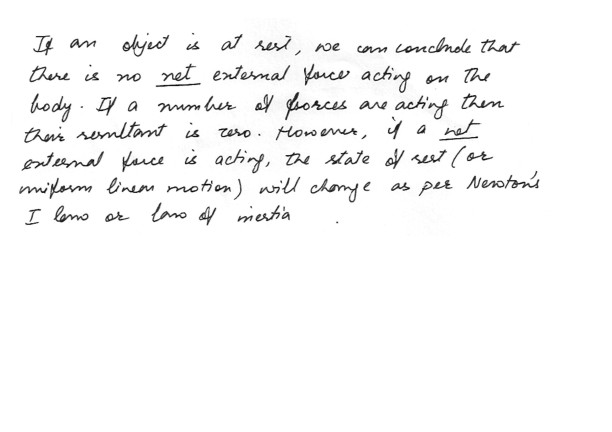 If an object is at rest, we can conclude that
there is no net external force acting on the
body. If a number of forces are acting then
their resultant is zero. However, if a net
external force is acting, the state of rest (or
uniform linear motion) will change as per Newton's
I law or law of inertia .